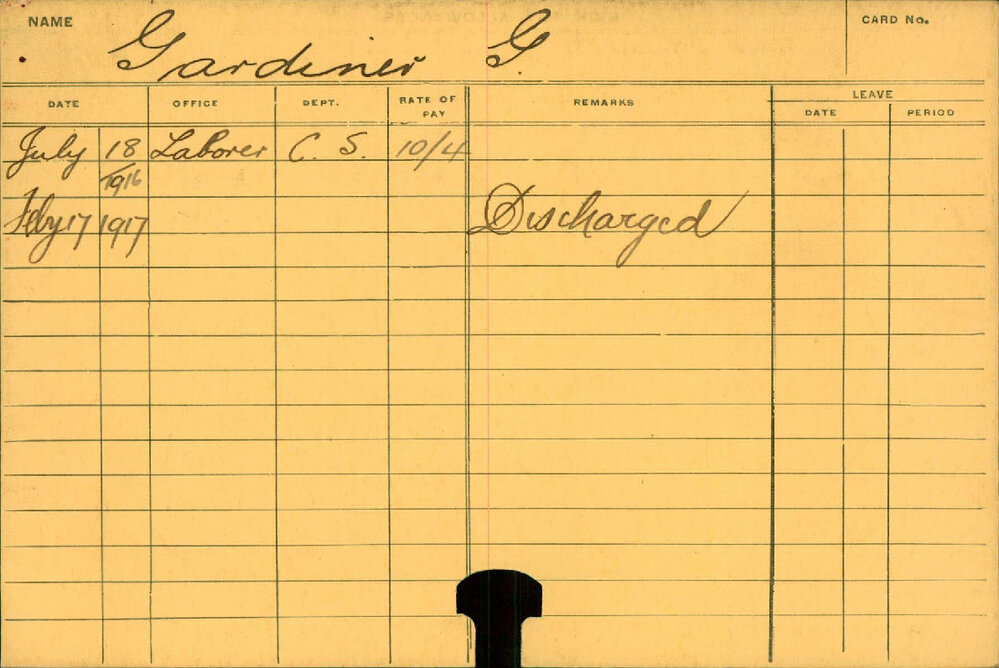 NAME Gardiner G. CARD No.
DATE OFFICE DEPT. RATE OF PAY REMARKS LEAVE
DATE PERIOD
July 18 Laborer C. S. 10/4
1916
Feby 17 1917 Discharged